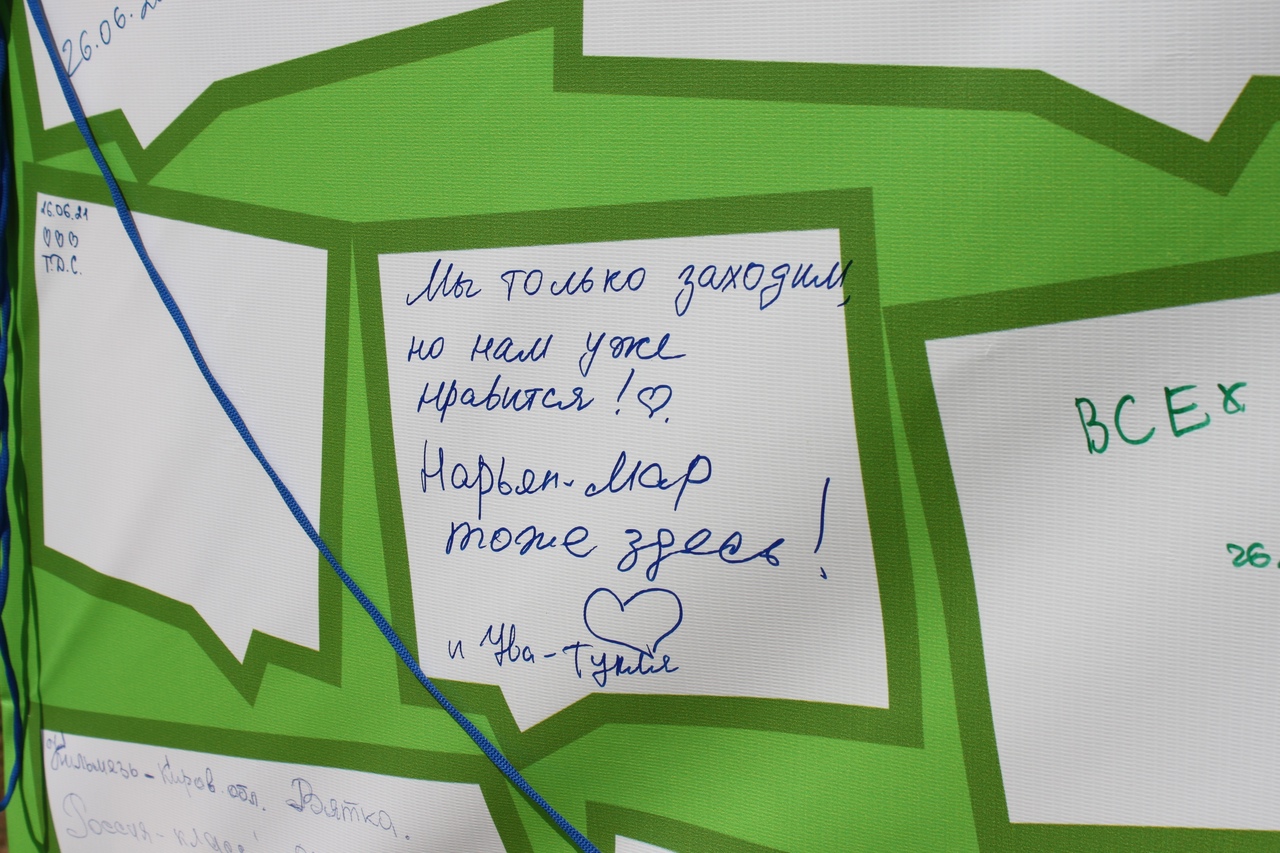 26.06.2
16.06.21
♡♡♡
Т.Д.С.
Мы только заходим,
но нам уже
нравится! ♡
Нарьян-Мар
тоже здесь!
и Ува-Тукля
ВСЕХ
26.
Кильмезь-Киров. обл. Вятка.
Россия-